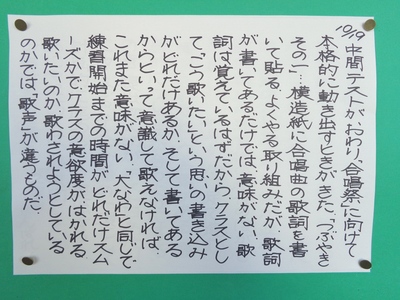 10/19 中間テストがおわり、合唱祭に向けて
本格的に動き出すときがきた。つぶやき
その一…模造紙に合唱曲の歌詞を書
いて貼る。よくやる取り組みだが、歌詞
が書いてあるだけでは意味がない。歌
詞は覚えているはずだから、クラスとし
て、「こう歌いたい」という思いの書き込み
がどれだけあるか、そして書いてある
からといって意識して歌えなければ、
これまた意味がない。大なわと同じで
練習開始までの時間がどれだけスム
ーズかで、クラスの意欲度がはかれる
歌いたいのか歌わされようとしている
のかでは、「歌声」が違うのだ。